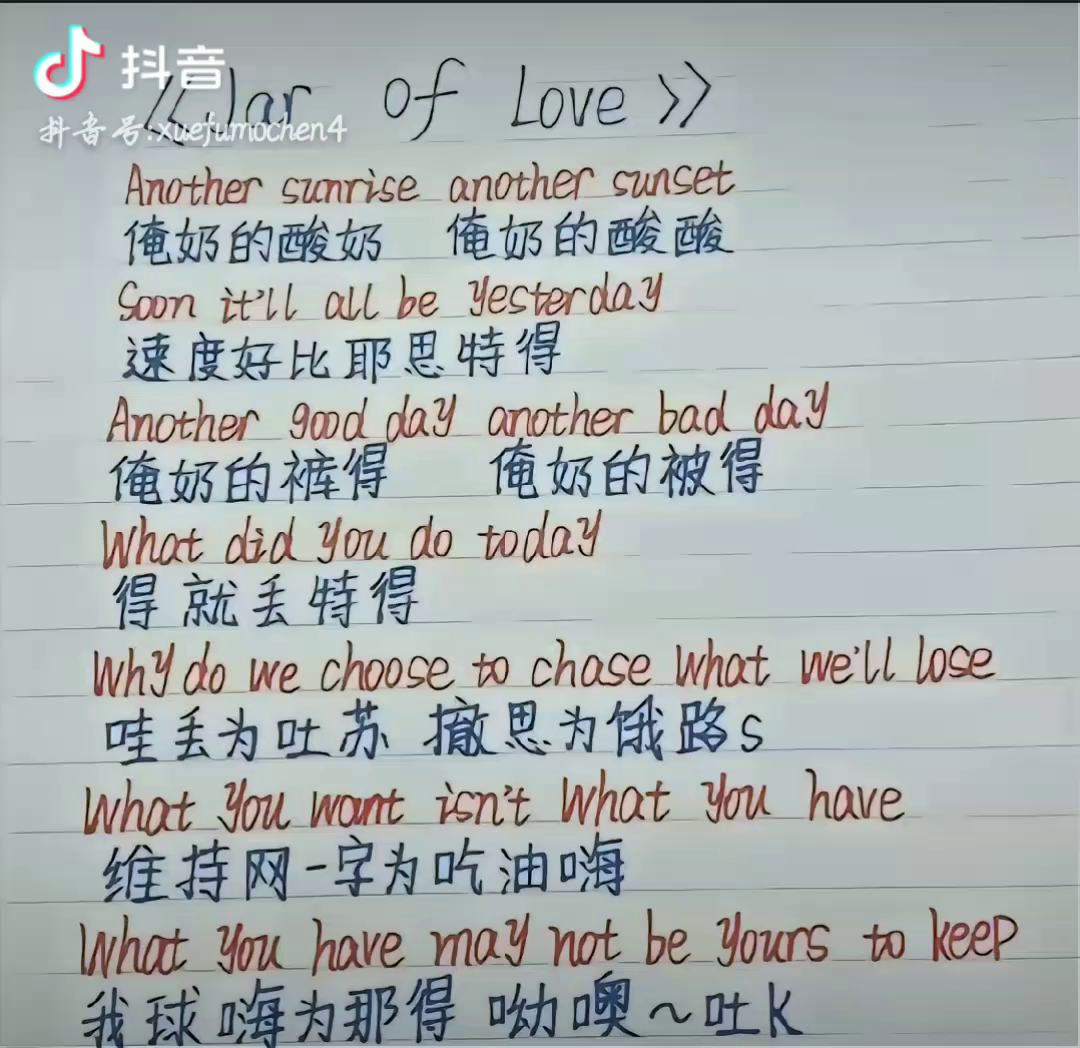 抖音
抖音号:xuefumochen4
《Jar of Love》
Another sunrise another sunset
俺奶的酸奶 俺奶的酸酸
Soon it'll all be yesterday
速度好比耶思特得
Another good day another bad day
俺奶的裤得 俺奶的被得
What did you do today
得就丢特得
Why do we choose to chase what we'll lose
哇丢为吐苏 撤思为饿路s
What you want isn't what you have
维持网一字为吃油嗨
What you have may not be yours to keep
我球嗨为那得 呦噢~吐K